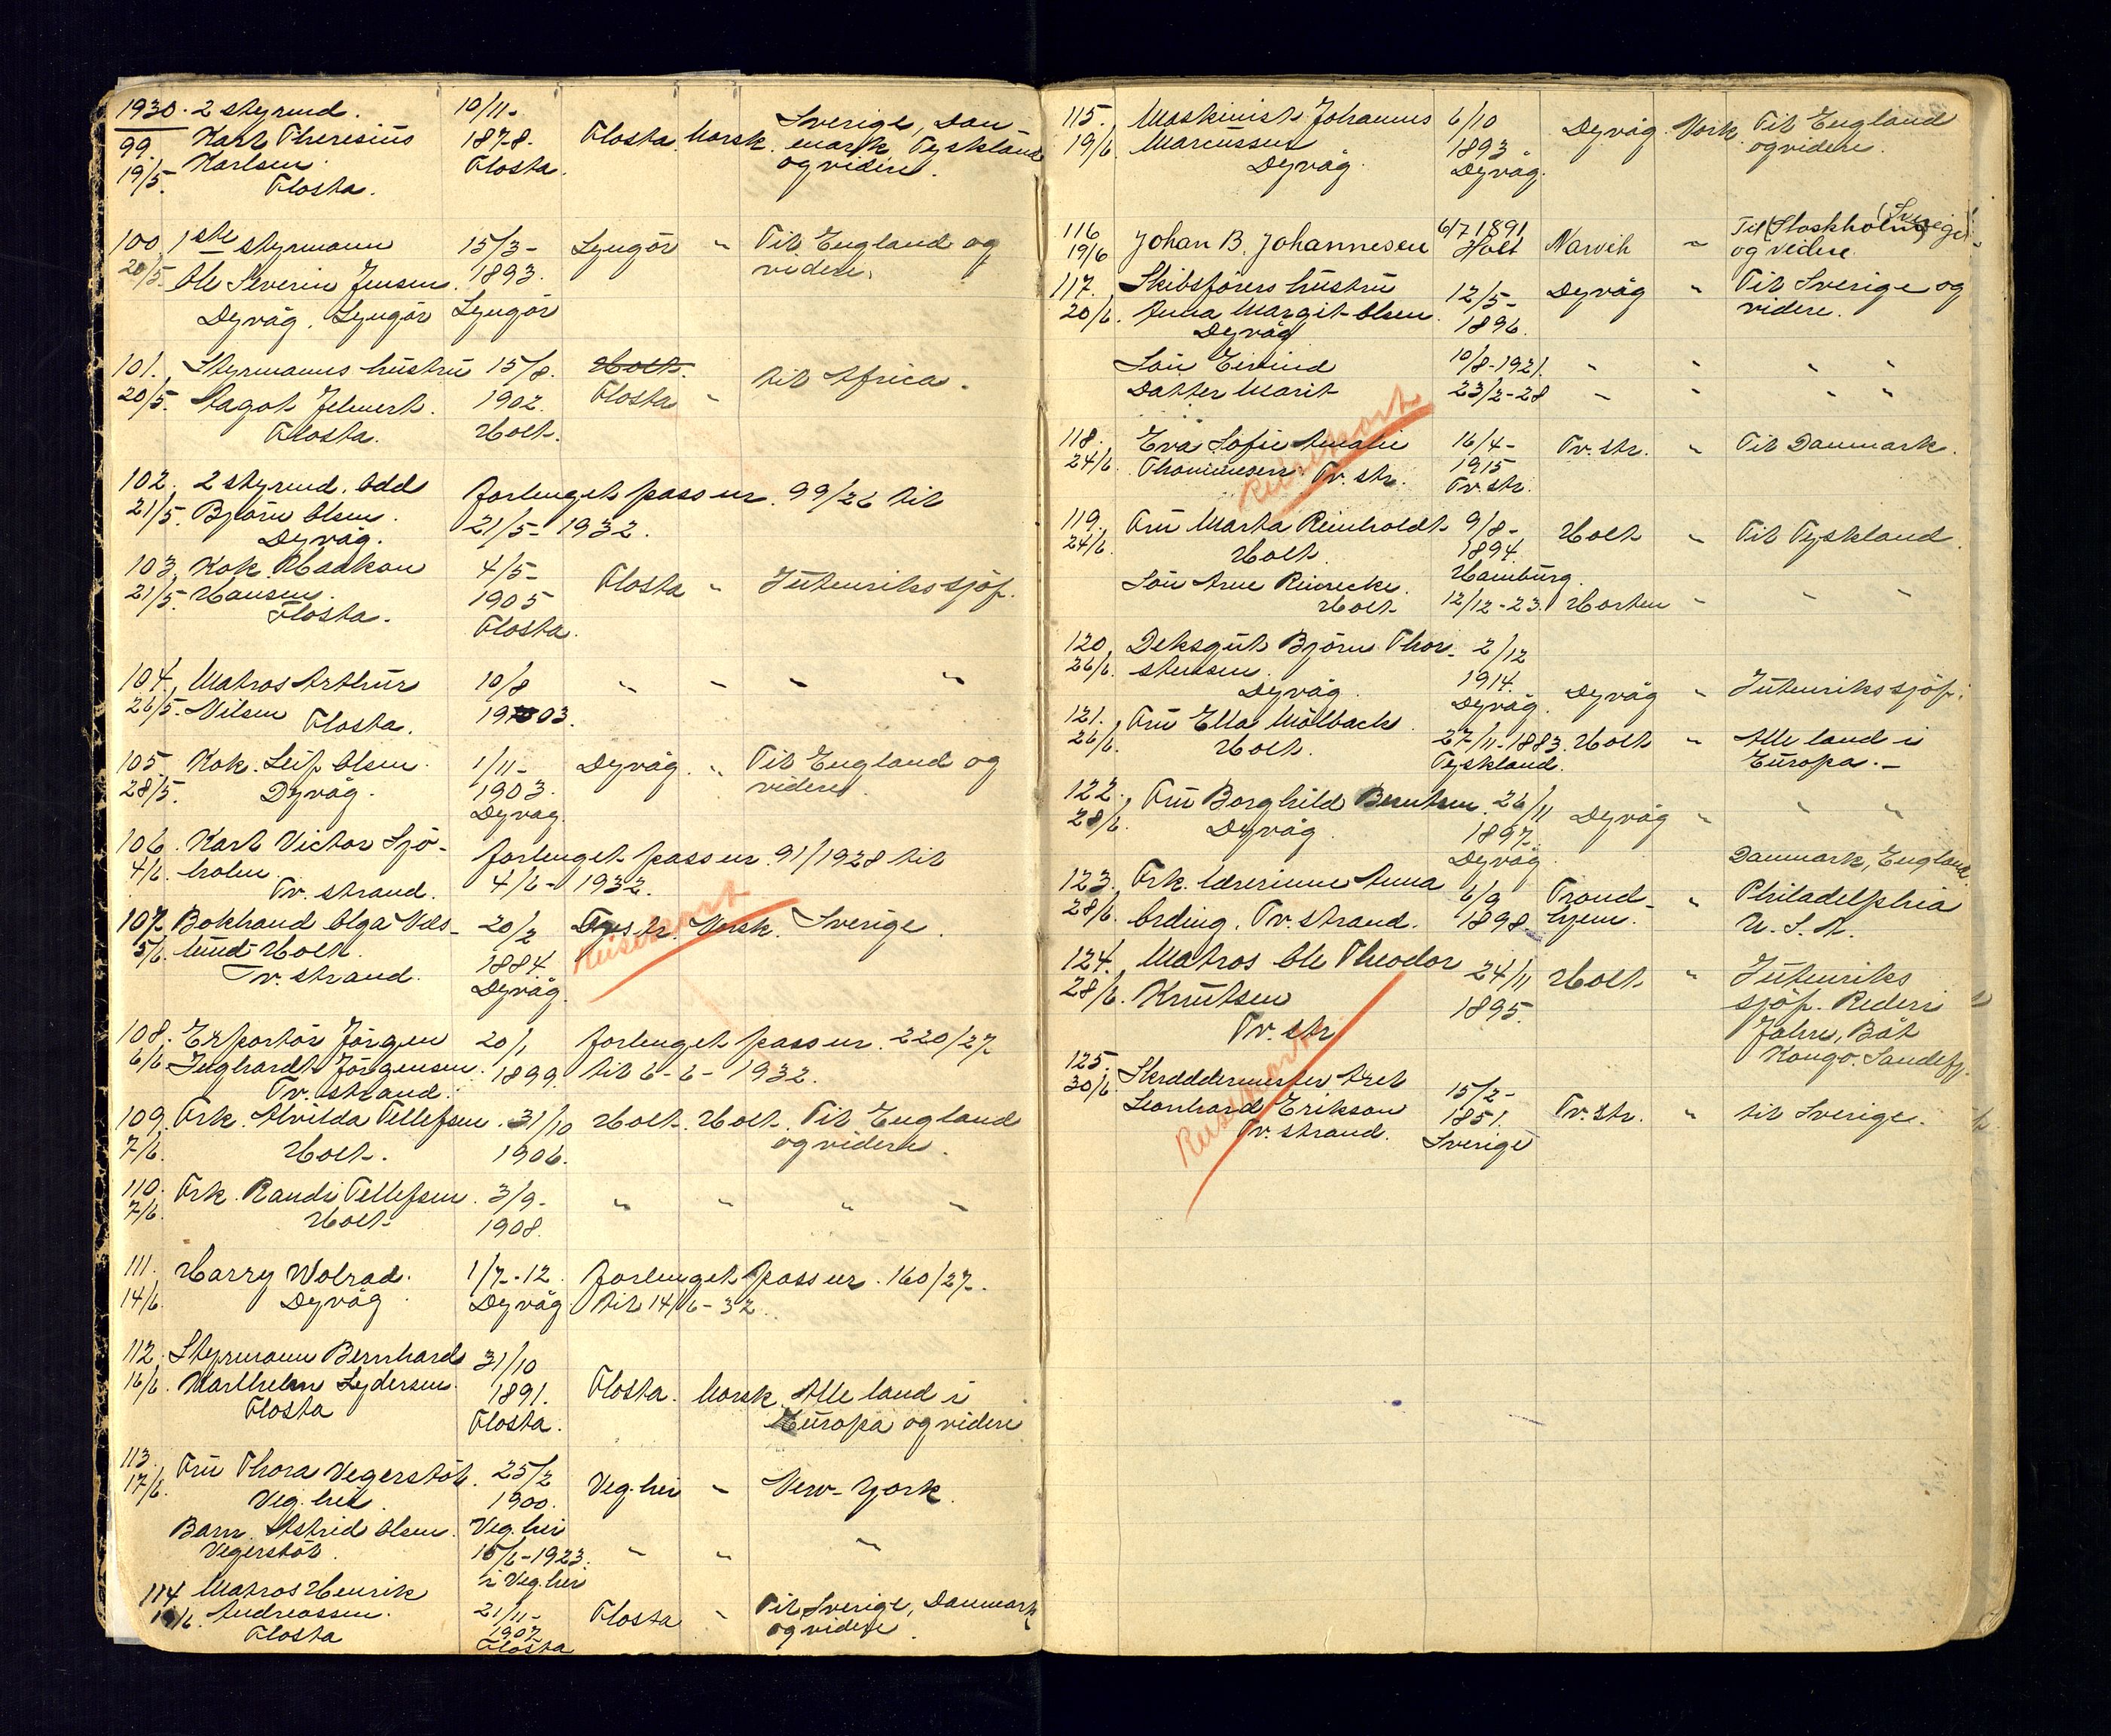 1930. 2 styrmd. 10/11-
99. Karl Theresius 1878. Flosta. Norsk. Sverige, Dan-
19/5. Karlsen. Flosta. mark Tyskland
Flosta. og videre.
100, 1ste styrmann 15/3- Lyngör " Til England og
20/5. Ole Severin Jensen. 1893. videre.
Dyvåg. Lyngör Lyngör
101. Styrmanns hustru 15/8. Holt.
20/5. Dagot Jelmert. 1902. Flosta " til Africa.
Flosta. Holt.
102. 2 styrmd. Odd forlenget pass nr. 99/26 til
21/5. Björn Olsen. 21/5- 1932.
Dyvåg.
103, Kok. Haakon 4/5- Flosta " Utenrikssjöf.
21/5. Hansen. 1905
Flosta. Flosta.
104, Matros Arthur 10/8 " " " "
26/5. Nilsen Flosta. 1903.
105 Kok. Leif Olsen. 1/11- Dyvåg. " Til England og
28/5. Dyvåg. 1903. videre.
Dyvåg.
106. Karl Victor Sjö- forlenget pass nr. 91/1928 til
4/6. holm. 4/6- 1932.
Tv. strand.
107. Bokhand Olga Ves- 20/2 Norsk. Sverige.
5/6. lund Holt. 1884.
Tv. strand. Dyvåg.
Reisekort
108. Exportör Jörgen 20/1 forlenget pass nr. 220/27
6/6 Inghardt Jörgensen. 1899. til 6-6- 1932.
Tv. strand.
109. Frk. Alvilda Tellefsen. 31/10 Holt. Holt. Til England
7/6. Holt. 1906. og videre.
110. Frk. Randi Tellefsen. 3/9- " " " "
7/6. Holt 1908.
111. Harry Wolrad. 1/7-12. forlenget pass nr. 160/27.
14/6. Dyvåg. Dyvåg til 14/6-32.
112, Styrmann Bernhard 31/10
16/6. Lydersen. 1891. Flosta. Norsk. Alle land i
Flosta Flosta. Europa og videre
113. Fru Thora Vegerstöl. 25/2 Veg.hei " New-York.
17/6. Veg. hei. 1900.
Barn. Astrid Olsen. Veg. hei
Vegerstöl. 15/6-1923. " " "
i Veg.hei
114 Matros Henrik
/6. Andreassen. 21/11- Flosta " Til Sverige, Danmark
Flosta 1907. og videre.
Flosta
115. Maskinist Johannes 6/10 Dyvåg. Norsk. Til England
19/6. Marcussen 1893. og videre.
Dyvåg. Dyvåg.
116 Johan B. Johannesen 6/7 1891 Narvik " Til Stockholm (Sverige)
19/6 Holt og videre.
117. Skibsförers hustru 12/5- Dyvåg " Til Sverige og
20/6. Anna Margit Olsen. 1896. videre.
Dyvåg
Sön Eivind 10/8-1921. " " " "
Datter Marit 23/2-28 " " " "
118. Eva Sofie Amalie 16/4- Tv. str. " Til Danmark.
24/6. Thommesen. Tv. str. 1915
Tv. str.
Reisekort
119. Fru Marta Reinholdt 9/8- Holt " Til Tyskland.
24/6. Holt. 1894.
Hamburg.
Sön Arne Reinecke.
Holt 12/12-23. Horten " " "
120, Deksgut Björn Thor- 2/12
26/6. stensen. 1914. Dyvåg " Utenrikssjöf.
Dyvåg. Dyvåg.
121. Fru Ella Mölback 27/11-1883. Holt " Alle land i
26/6. Holt. Tyskland. Europa.-
122. Fru Borghild Berntsen. 26/11 Dyvåg " " "
28/6. Dyvåg. 1897.
Dyvåg.
123. Frk. lærerinne Anna 6/9 Trond- " Danmark, England.
28/6. Ording. Tv. strand. 1898. hjem. Philadelphia
U. S. A.
124. Matros Ole Theodor 24/11 Holt " Utenriks
28/6. Knutsen 1895. sjöf. Rederi
Tv. str Jahre, Båt
Kongo. Sandefj.
125. Skreddermester Axel 15/2-
30/6. Leonhard Erikson 1851. Tv. str. " til Sverige.
Tv. strand. Sverige
Reisekort